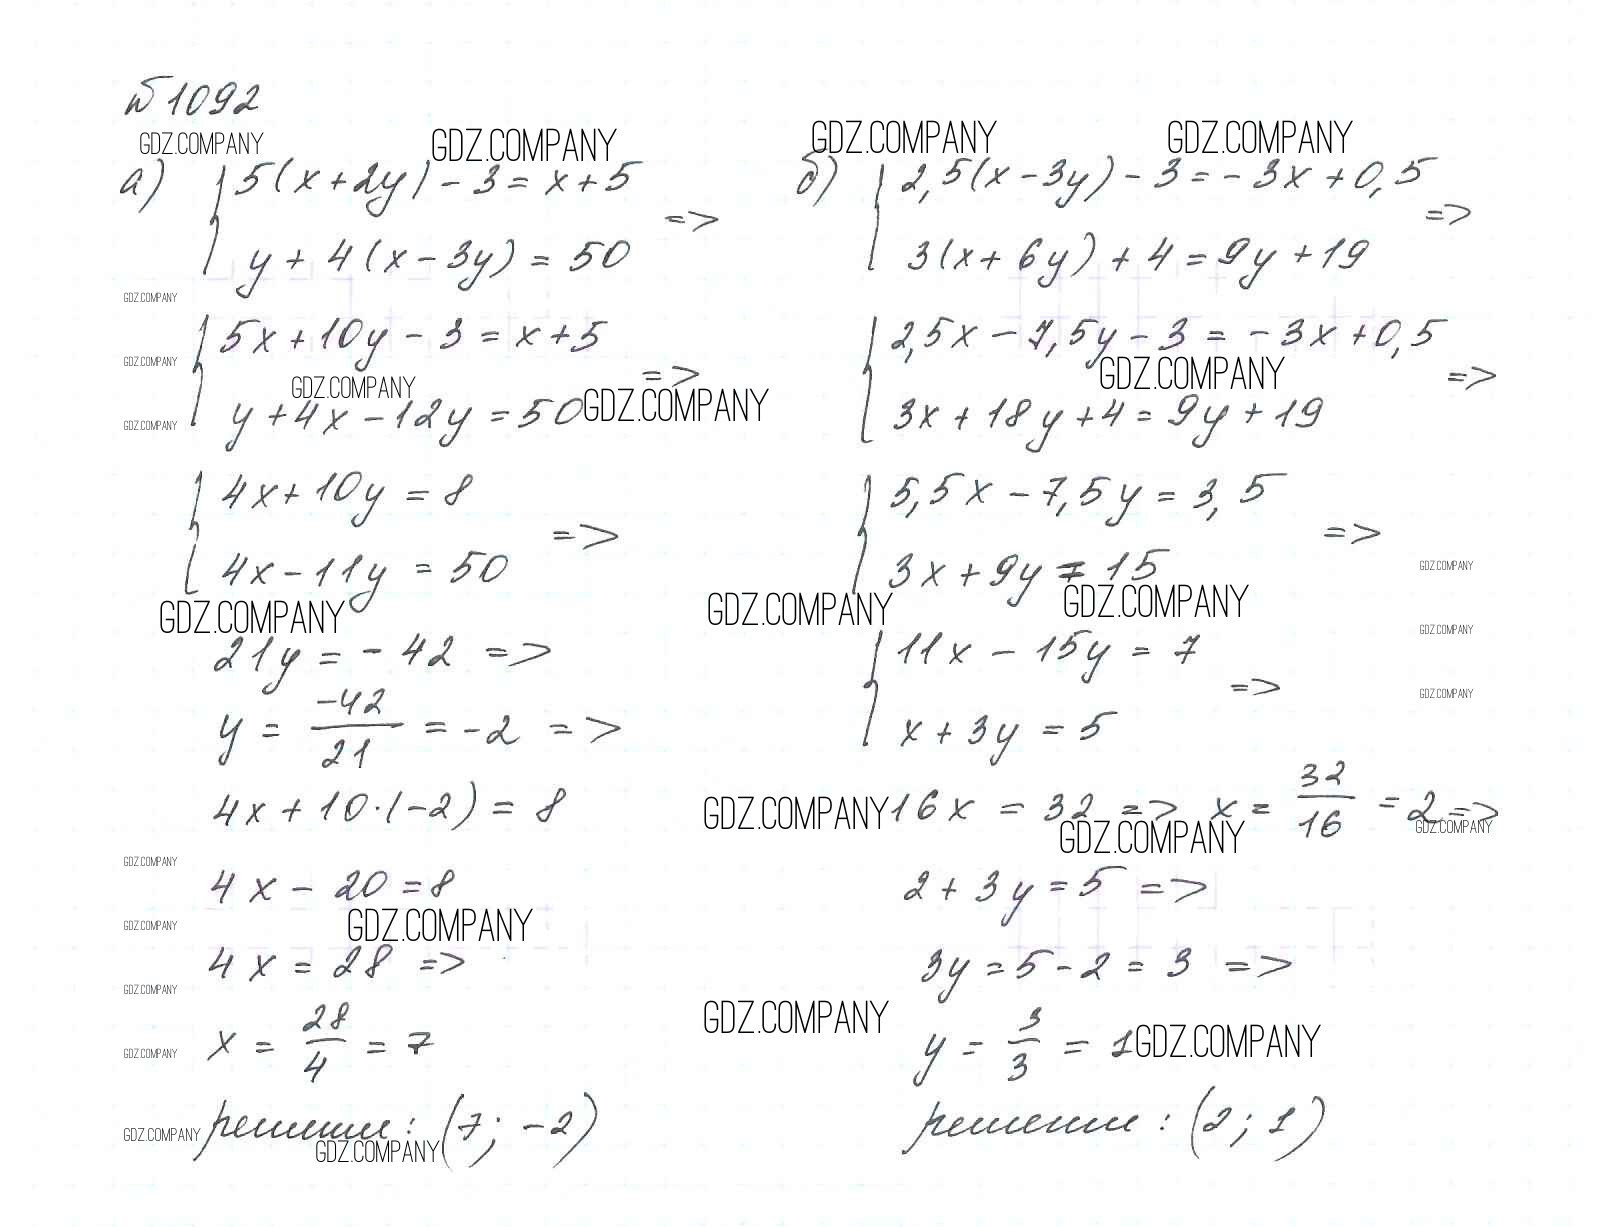 № 1092
GDZ.COMPANY GDZ.COMPANY GDZ.COMPANY GDZ.COMPANY
а) 5(x + 2y) - 3 = x + 5
=>
y + 4(x - 3y) = 50
GDZ.COMPANY
5x + 10y - 3 = x + 5
GDZ.COMPANY
=>
GDZ.COMPANY
y + 4x - 12y = 50 GDZ.COMPANY
GDZ.COMPANY
4x + 10y = 8
=>
4x - 11y = 50
GDZ.COMPANY
21y = - 42 =>
y = -42/21 = -2 =>
4x + 10·(-2) = 8
GDZ.COMPANY
4x - 20 = 8
GDZ.COMPANY GDZ.COMPANY
4x = 28 =>
GDZ.COMPANY
x = 28/4 = 7
GDZ.COMPANY
GDZ.COMPANY решение: (7; -2)
GDZ.COMPANY
б) 2,5(x - 3y) - 3 = - 3x + 0,5
=>
3(x + 6y) + 4 = 9y + 19
2,5x - 7,5y - 3 = - 3x + 0,5
GDZ.COMPANY =>
3x + 18y + 4 = 9y + 19
5,5x - 7,5y = 3,5
=>
3x + 9y = 15
GDZ.COMPANY
GDZ.COMPANY GDZ.COMPANY
GDZ.COMPANY
11x - 15y = 7
=>
GDZ.COMPANY
x + 3y = 5
GDZ.COMPANY 16x = 32 => x = 32/16 = 2 =>
GDZ.COMPANY GDZ.COMPANY
2 + 3y = 5 =>
3y = 5 - 2 = 3 =>
GDZ.COMPANY
y = 3/3 = 1 GDZ.COMPANY
решение: (2; 1)